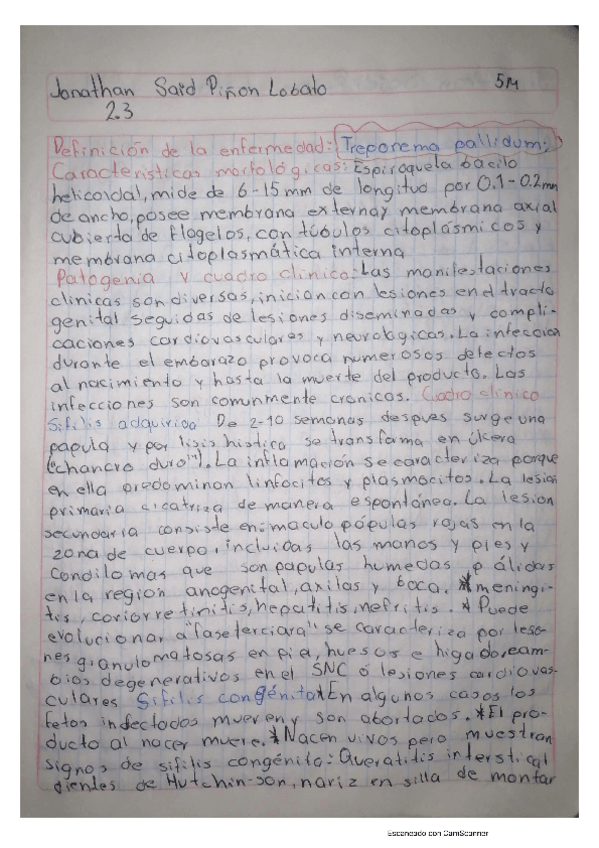 Jonathan Said Piñon Lobato 5M
2.3
Definición de la enfermedad: Treponema pallidum:
Características morfológicas: Espiroqueta bacilo
helicoidal, mide de 6-15 mm de longitud por 0.1-0.2mm
de ancho, posee membrana externa y membrana axial
cubierta de flagelos, con túbulos citoplásmicos y
membrana citoplasmática interna
Patogenia y cuadro clinico: Las manifestaciones
clinicas son diversas, inician con lesiones en el tracto
genital seguidas de lesiones diseminadas y compli-
caciones cardiovasculares y neurologicas. La infeccion
durante el embarazo provoca numerosos defectos
al nacimiento y hasta la muerte del producto. Las
infecciones son comunmente cronicos. Cuadro clinico
Sifilis adquirida De 2-10 semanas despues surge una
papula y por lisis histica se transforma en úlcera
("chancro duro"). La inflamación se caracteriza porque
en ella predominan linfocitos y plasmocitos. La lesion
primaria cicatriza de manera espontánea. La lesion
secundaria consiste en: maculo pópulas rojas en la
zona de cuerpo, incluidas las manos y pies y
Condilomas que son papulas humedas pálidas
en la region anogenital, axilas y boca. *meningi-
tis, coriorretinitis, hepatitis, nefritis. *Puede
evolucionar a "fase terciara" se caracteriza por lesio-
nes granulomatosas en piel, huesos e higado, cam-
bios degenerativos en el SNC ó lesiones cardiovas-
culares Sifilis congénita *En algunos casos los
fetos infectados mueren y son abortados. *El pro-
ducto al nacer muere. *Nacen vivos pero muestran
signos de sifilis congénito: Queratitis interstical
dientes de Hutchin-son, nariz en silla de montar
Escaneado con CamScanner